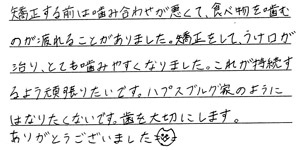 矯正する前は噛み合わせが悪くて、食べ物を噛む
のが疲れることがありました。矯正をして、うけ口が
治り、とても噛みやすくなりました。これが持続す
るよう頑張りたいです。ハプスブルク家のように
はなりたくないです。歯を大切にします。
ありがとうございました